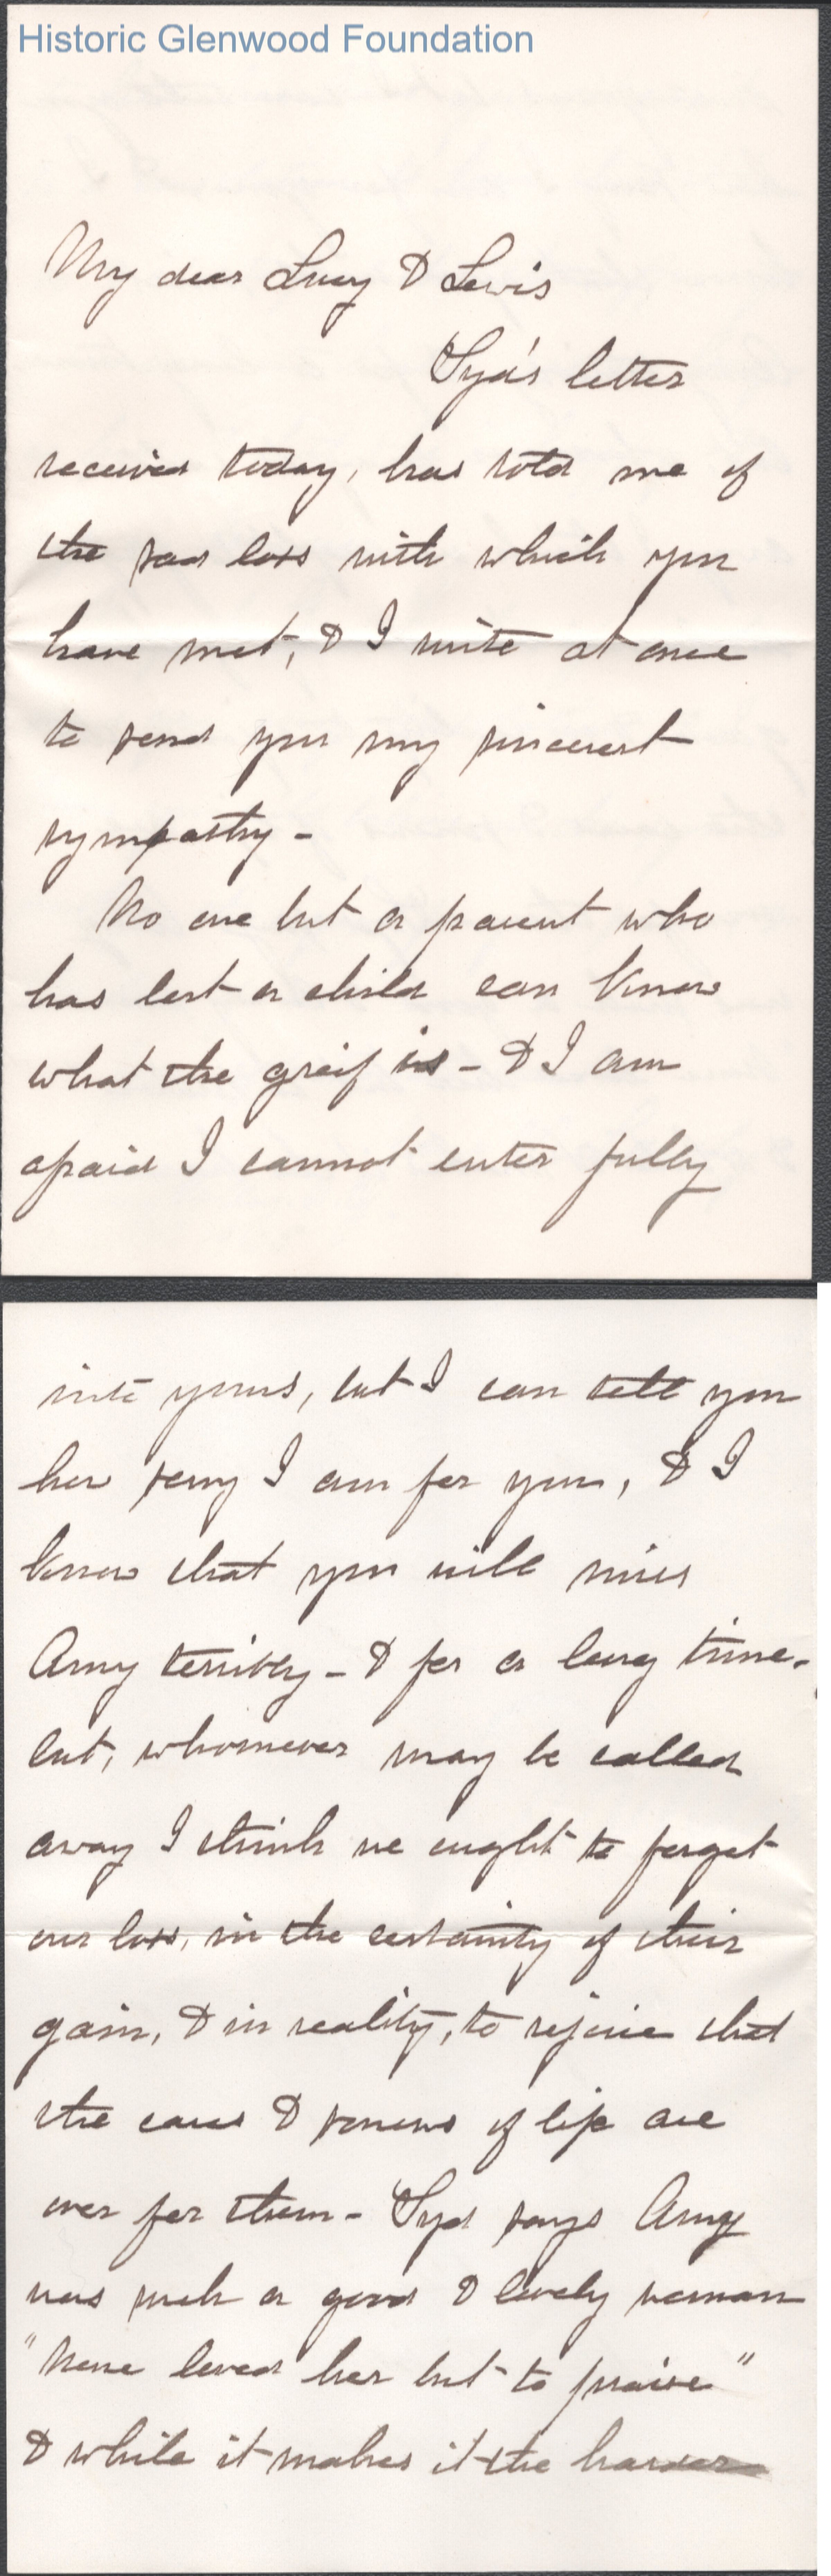 Historic Glenwood Foundation
My dear Lucy & Lewis
Syd's letter
received today, has told me of
the sad loss with which you
have met, & I write at once
to send you my sincerest
sympathy -
No one but a parent who
has lost a child can know
what the greif is - & I am
afraid I cannot enter fully
into yours, but I can tell you
how sorry I am for you, & I
know that you will miss
Amy terribly - & for a long time.
but, whomever may be called
away I think we ought to forget
our loss, in the certainity of their
gain, & in reality, to rejoice that
the cares & sorrows of life are
over for them - Syd says Amy
was such a good & lovely woman
"None loved her but to praise"
& while it makes it the harder